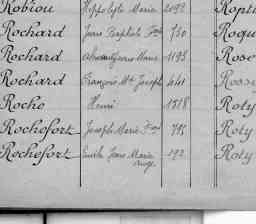 Robiou Hippolyte Marie 2193 Ropti
Rochard Jean Baptiste Fois 750 Roqu
Rochard Marie 1193 Rose
Rochard François Mie Joseph 441 Roose
Roche Henri 1318 Roty
Rochefort Joseph Marie Fois 795 Roty
Rochefort Emile Jean Marie 192 Roty